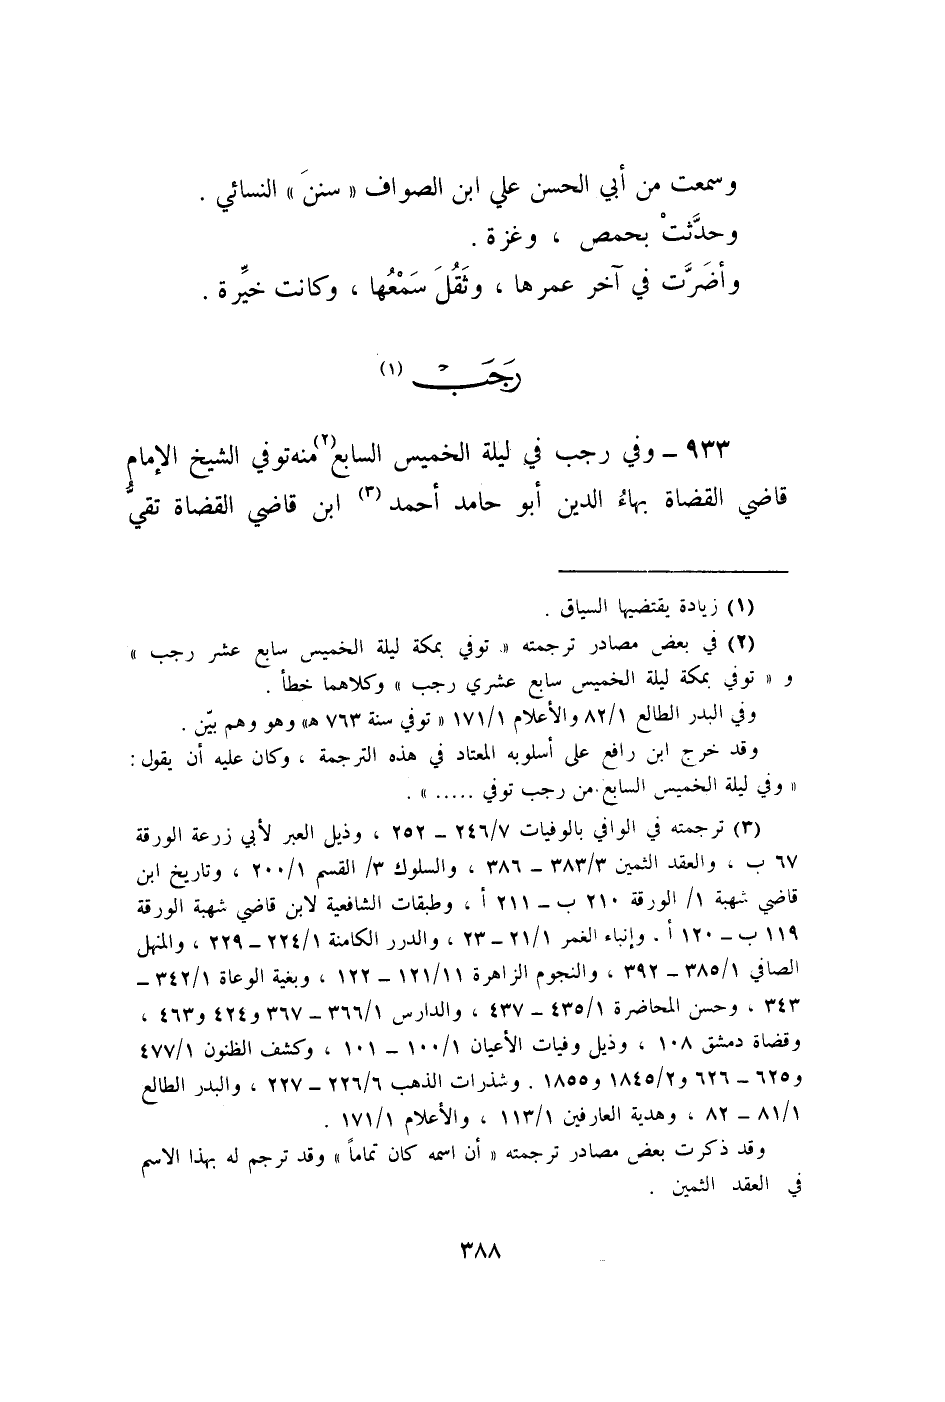 وسمعت من أبي الحسن علي ابن الصواف « سننَ » النسائي .
وحدَّثتْ بحمص ، وغزة .
وأضَرَّت في آخر عمرها ، وثَقُلَ سَمْعُها ، وكانت خيِّرة .
رَجَب (١)
٩٣٣ ـ وفي رجب في ليلة الخميس السابع(٢)منه توفي الشيخ الإمام
قاضي القضاة بهاءُ الدين أبو حامد أحمد (٣) ابن قاضي القضاة تقيُّ
(١) زيادة يقتضيها السياق .
(٢) في بعض مصادر ترجمته « توفي بمكة ليلة الخميس سابع عشر رجب »
و « توفي بمكة ليلة الخميس سابع عشري رجب » وكلاهما خطأ .
وفي البدر الطالع ٨٢/١ والأعلام ١٧١/١ « توفي سنة ٧٦٣ هـ» وهو وهم بيّن .
وقد خرج ابن رافع على أسلوبه المعتاد في هذه الترجمة ، وكان عليه أن يقول :
« وفي ليلة الخميس السابع من رجب توفي ..... » .
(٣) ترجمته في الوافي بالوفيات ٢٤٦/٧ ـ ٢٥٢ ، وذيل العبر لأبي زرعة الورقة
٦٧ ب ، والعقد الثمين ٣٨٣/٣ ـ ٣٨٦ ، والسلوك ٣/ القسم ٢٠٠/١ ، وتاريخ ابن
قاضي شهبة ١/ الورقة ٢١٠ ب ـ ٢١١ أ ، وطبقات الشافعية لابن قاضي شهبة الورقة
١١٩ ب ـ ١٢٠ أ . وإنباء الغمر ٢١/١ ـ ٢٣ ، والدرر الكامنة ٢٢٤/١ ـ ٢٢٩ ، والمنهل
الصافي ٣٨٥/١ ـ ٣٩٢ ، والنجوم الزاهرة ١٢١/١١ ـ ١٢٢ ، وبغية الوعاة ٣٤٢/١ ـ
٣٤٣ ، وحسن المحاضرة ٤٣٥/١ ـ ٤٣٧ ، والدارس ٣٦٦/١ ـ ٣٦٧ و٤٢٤ و٤٦٣ ،
وقضاة دمشق ١٠٨ ، وذيل وفيات الأعيان ١٠٠/١ ـ ١٠١ ، وكشف الظنون ٤٧٧/١
و٦٢٥ ـ ٦٢٦ و١٨٤٥/٢ و١٨٥٥ . وشذرات الذهب ٢٢٦/٦ ـ ٢٢٧ ، والبدر الطالع
٨١/١ ـ ٨٢ ، وهدية العارفين ١١٣/١ ، والأعلام ١٧١/١ .
وقد ذكرت بعض مصادر ترجمته « أن اسمه كان تماماً » وقد ترجم له بهذا الاسم
في العقد الثمين .
٣٨٨